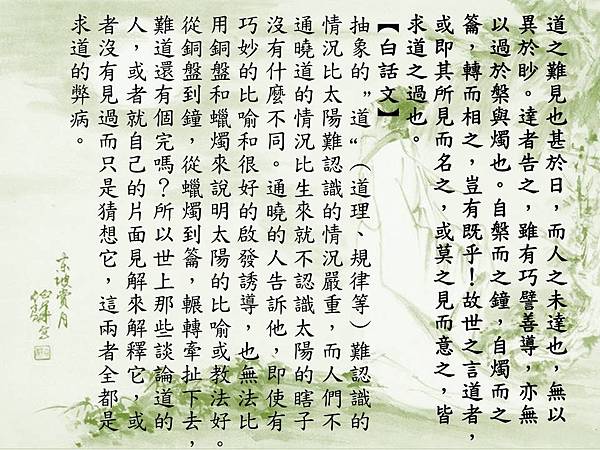 道之難見也甚於日，而人之未達也，無以
異於眇。達者告之，雖有巧譬善導，亦無
以過於槃與燭也。自槃而之鐘，自燭而之
籥，轉而相之，豈有既乎！故世之言道者，
或即其所見而名之，或莫之見而意之，皆
求道之過也。
【白話文】
抽象的〞道〝（道理、規律等）難認識的
情況比太陽難認識的情況嚴重，而人們不
通曉道的情況比生來就不認識太陽的瞎子
沒有什麼不同。通曉的人告訴他，即使有
巧妙的比喻和很好的啟發誘導，也無法比
用銅盤和蠟燭來說明太陽的比喻或教法好。
從銅盤到鐘，從蠟燭到籥，輾轉牽扯下去，
難道還有個完嗎？所以世上那些談論道的
人，或者就自己的片面見解來解釋它，或
者沒有見過而只是猜想它，這兩者全都是
求道的弊病。
東坡賞月